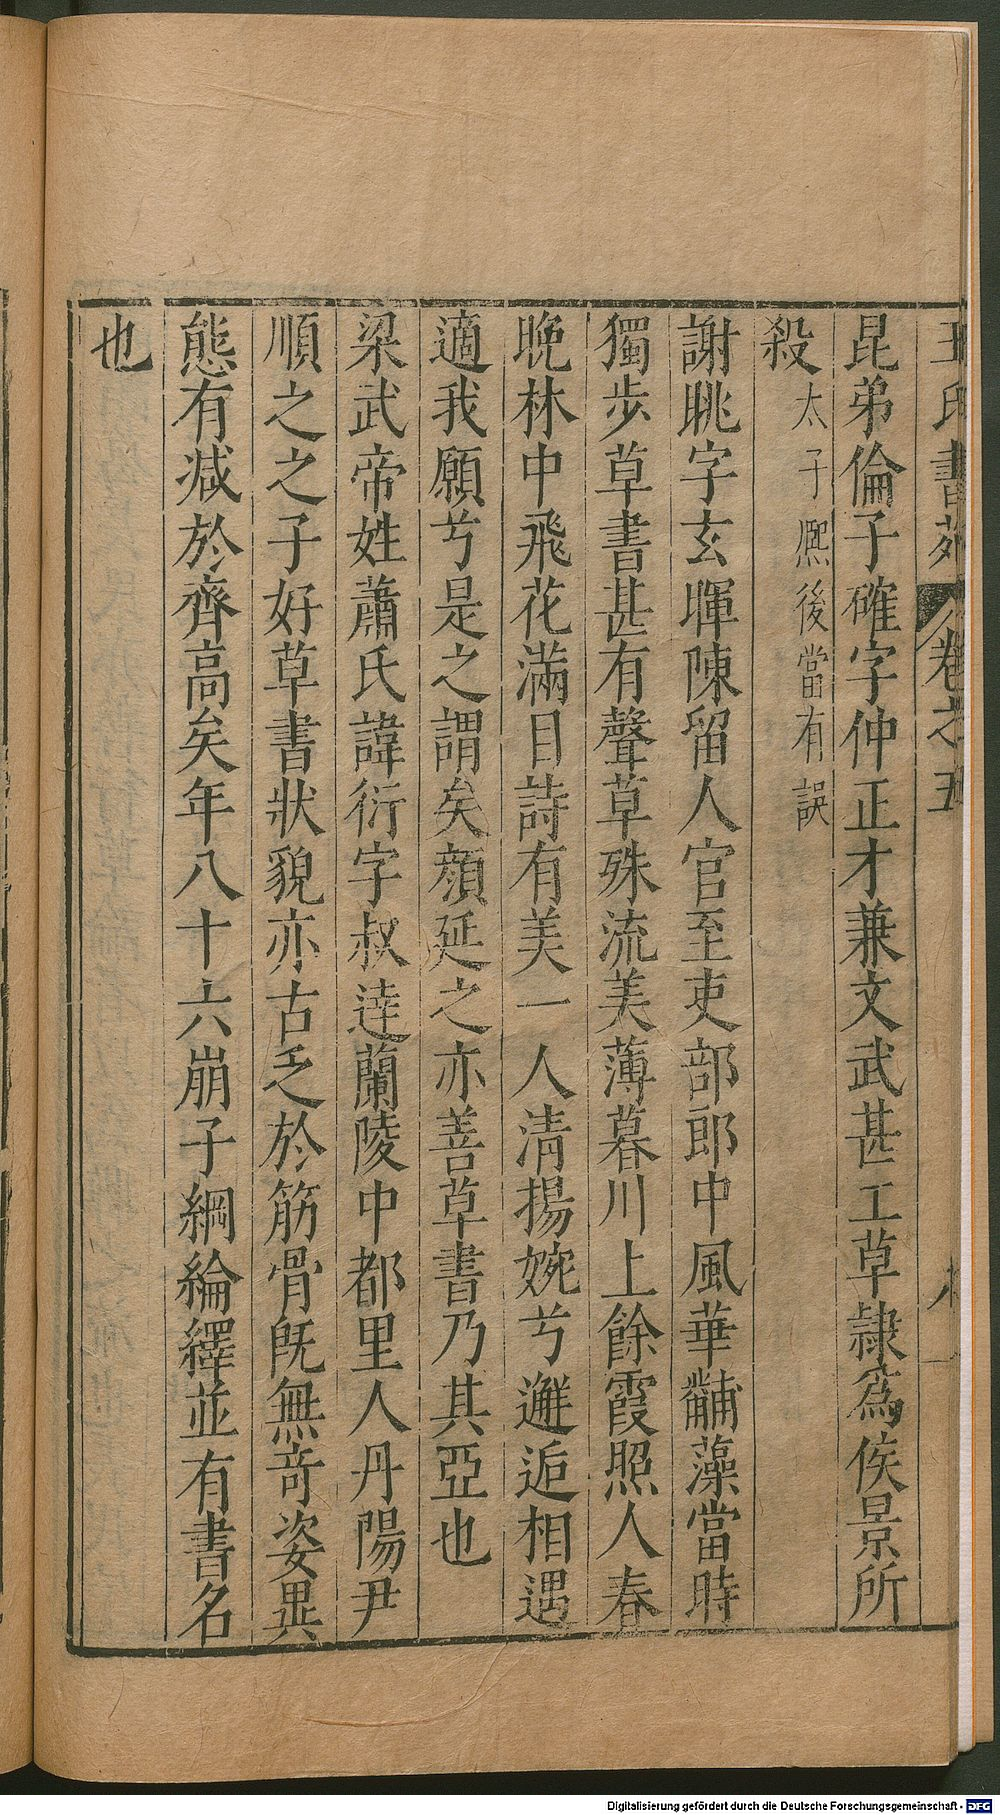 王氏書苑 卷之五
昆弟倫子確字仲正才兼文武甚工草隸爲侯景所
殺太子熈後當有誤
謝眺字玄暉陳留人官至吏部郎中風華黼藻當時
獨步草書甚有聲草殊流美薄暮川上餘霞照人春
晚林中飛花滿目詩有美一人清揚婉兮邂逅相遇
適我願兮是之謂矣顏延之亦善草書乃其亞也
梁武帝姓蕭氏諱衍字叔逹蘭陵中都里人丹陽尹
順之之子好草書狀貌亦古乏於筋骨旣無竒姿異
態有减於齊高矣年八十六崩子綱綸繹並有書名
也
Digitalisierung gefördert durch die Deutsche Forschungsgemeinschaft - DFG